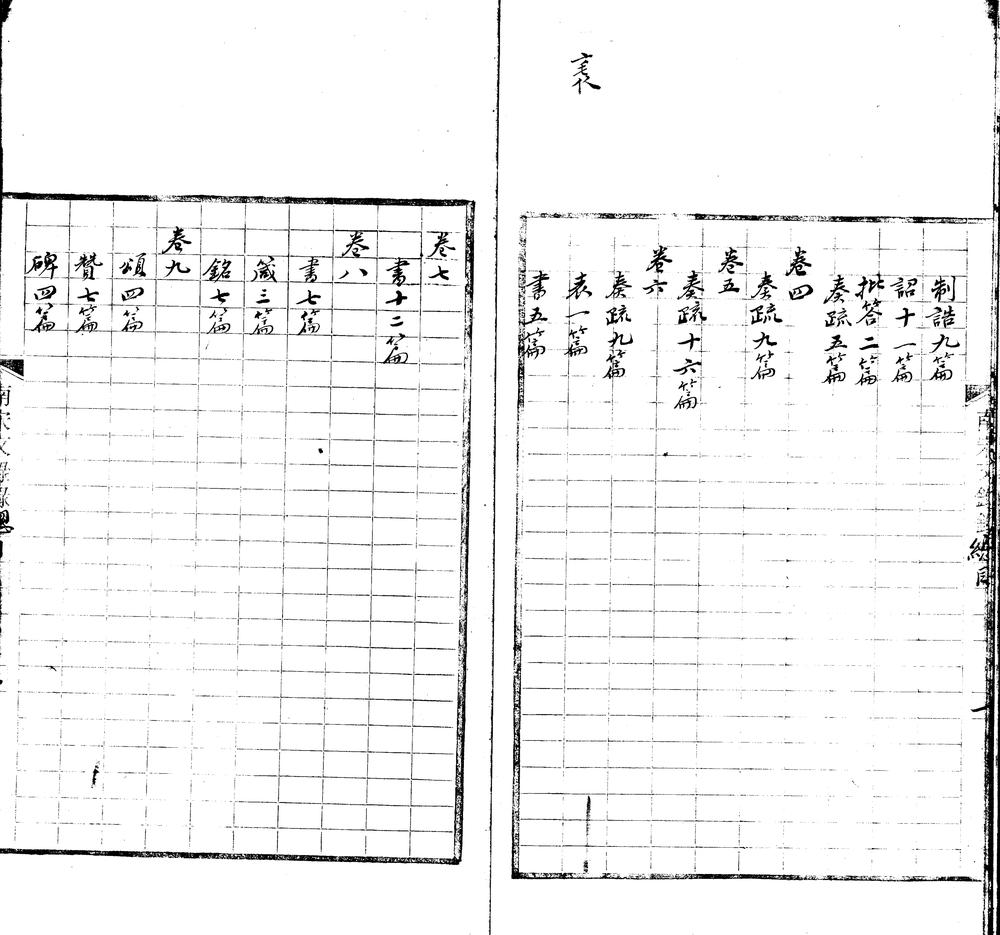 制誥九篇
詔十一篇
批答二篇
奏疏五篇
卷四
奏疏九篇
卷五
奏疏十六篇
卷六
奏疏九篇
表一篇
書五篇
南宋文錄錄總目
一
卷七
書十二篇
卷八
書七篇
箴三篇
銘七篇
卷九
頌四篇
贊七篇
碑四篇
南宋文錄錄總目